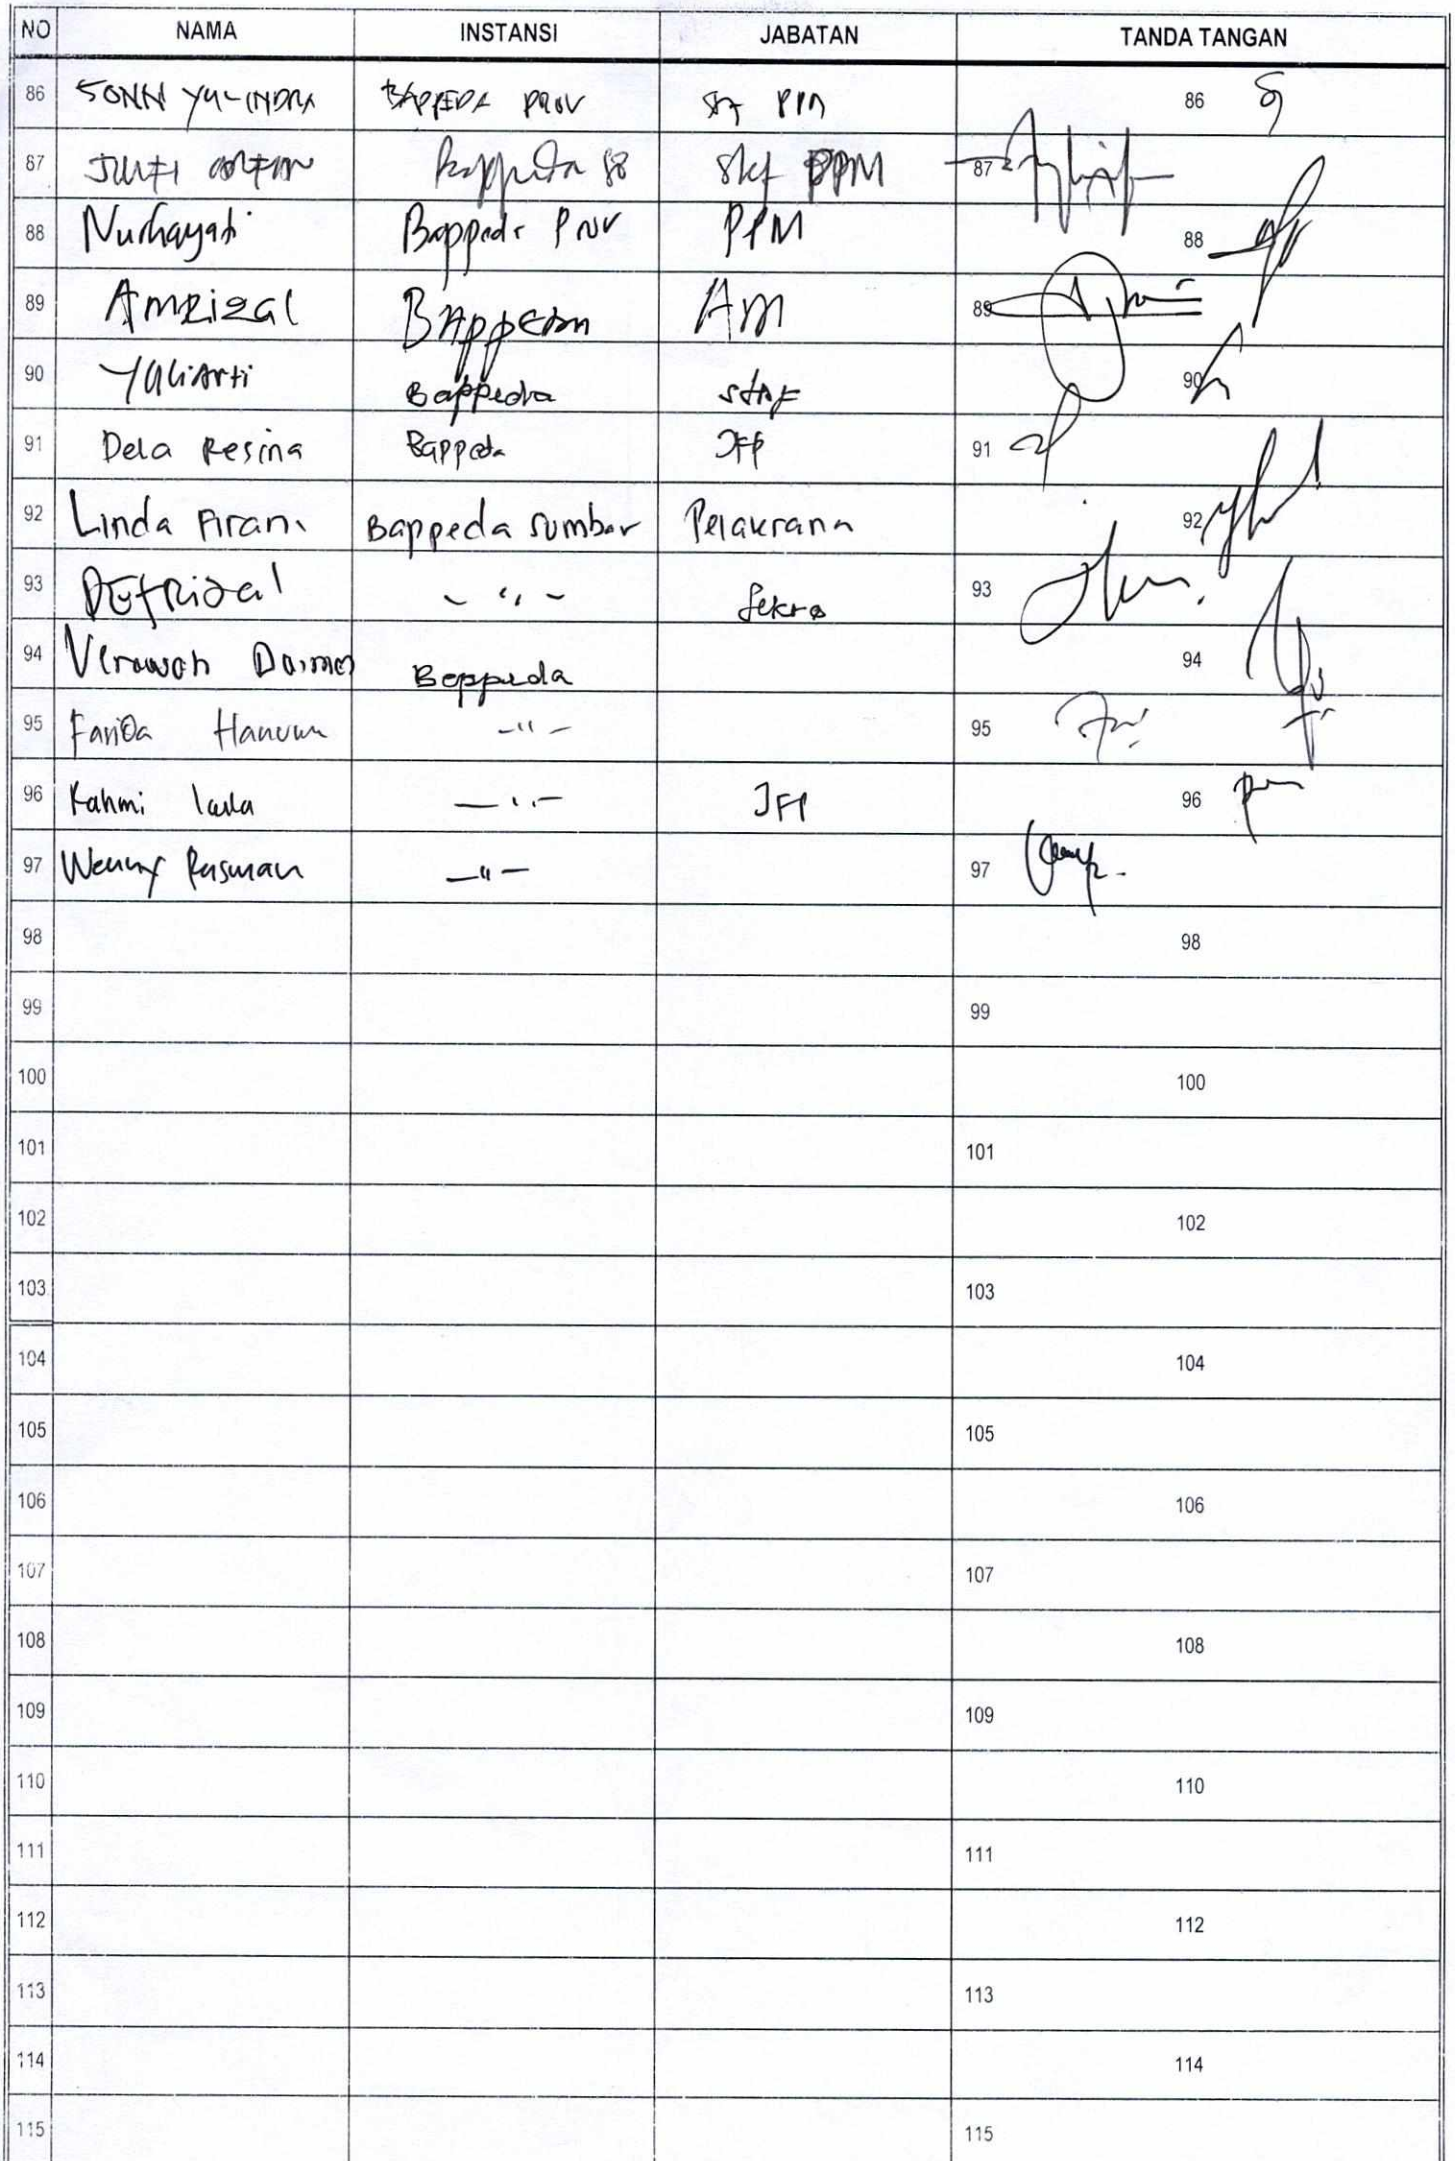 NO NAMA INSTANSI JABATAN TANDA TANGAN
86 SONN YULINDRA BAPPEDA PROV PPM 86
87 Bappeda SB Stf PPM 87
88 Nurhayati Bappeda Prov PPM 88
89 AMRizal BAppeda AM 89
90 YuliArti Bappeda stAF 90
91 Dela Resina Bappeda JFP 91
92 Linda Firani Bappeda Sumbar Pelaksana 92
93 DEfRizal - " - Sekre 93
94 Verawah Bappeda 94
95 Farida Hanum - " - 95
96 Rahmi Laila - " - JFP 96
97 Wenny Rusman - " - 97
98 98
99 99
100 100
101 101
102 102
103 103
104 104
105 105
106 106
107 107
108 108
109 109
110 110
111 111
112 112
113 113
114 114
115 115